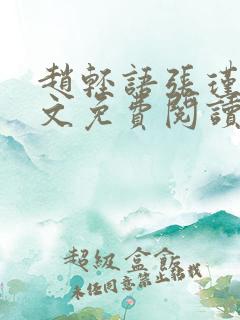 趙輕語張瑾
文免費閱讀
超級盒飯
未經同意禁止轉載